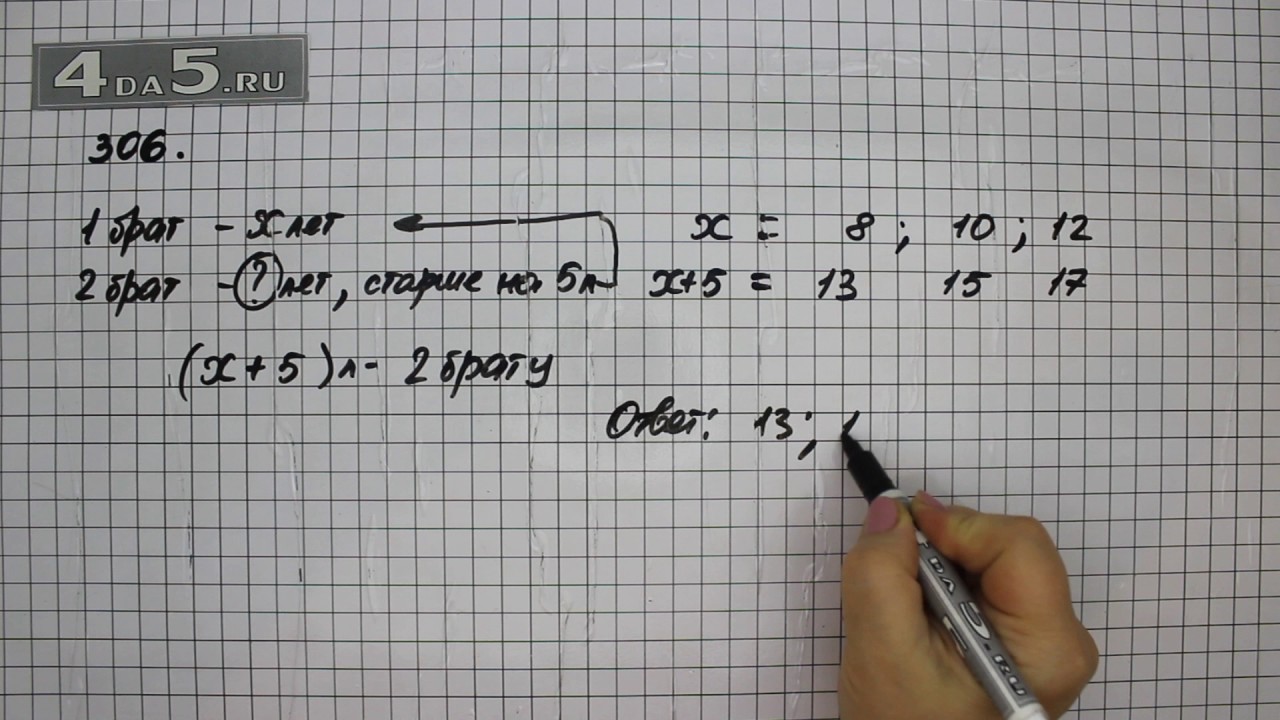 4DA5.RU
306.
1 брат - x лет
2 брат - ? лет, старше на 5 л
(x + 5) л - 2 брату
x = 8 ; 10 ; 12
x+5 = 13 15 17
Ответ: 13 ; 1
DA5.RU